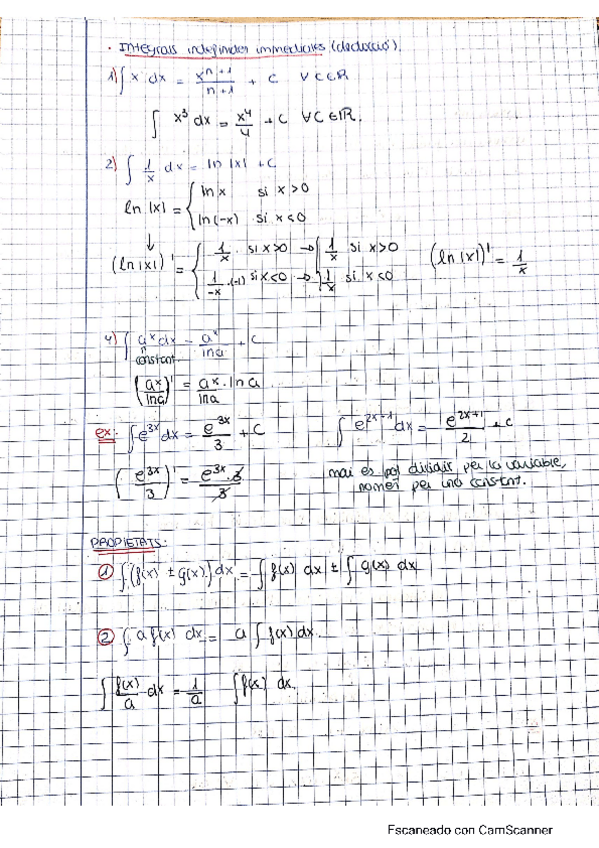 · Integrals indefinides immediates (deducció).
1) ∫ x dx = x^(n+1)/(n+1) + C ∀C∈ℝ
∫ x³ dx = x⁴/4 + C ∀C∈ℝ.
2) ∫ 1/x dx = ln |x| + C
ln |x| = { ln x si x>0
ln(-x) si x≤0
↓
(ln|x|)' = { 1/x si x>0 → { 1/x si x>0 (ln|x|)' = 1/x
1/-x · (-1) si x<0 → 1/x si x≤0
4) ∫ a^x dx = a^x/ln a + C
constant
(a^x/ln a)' = a^x · ln a/ln a
ex: ∫ e^(3x) dx = e^(3x)/3 + C ∫ e^(2x+1) dx = e^(2x+1)/2 + C
(e^(3x)/3)' = e^(3x) · 3/3 mai es pot dividir per la variable,
només per una constant.
PROPIETATS:
① ∫ (f(x) ± g(x)) dx = ∫ f(x) dx ± ∫ g(x) dx
② ∫ a f(x) dx = a ∫ f(x) dx.
∫ f(x)/a dx = 1/a ∫ f(x) dx.
Escaneado con CamScanner